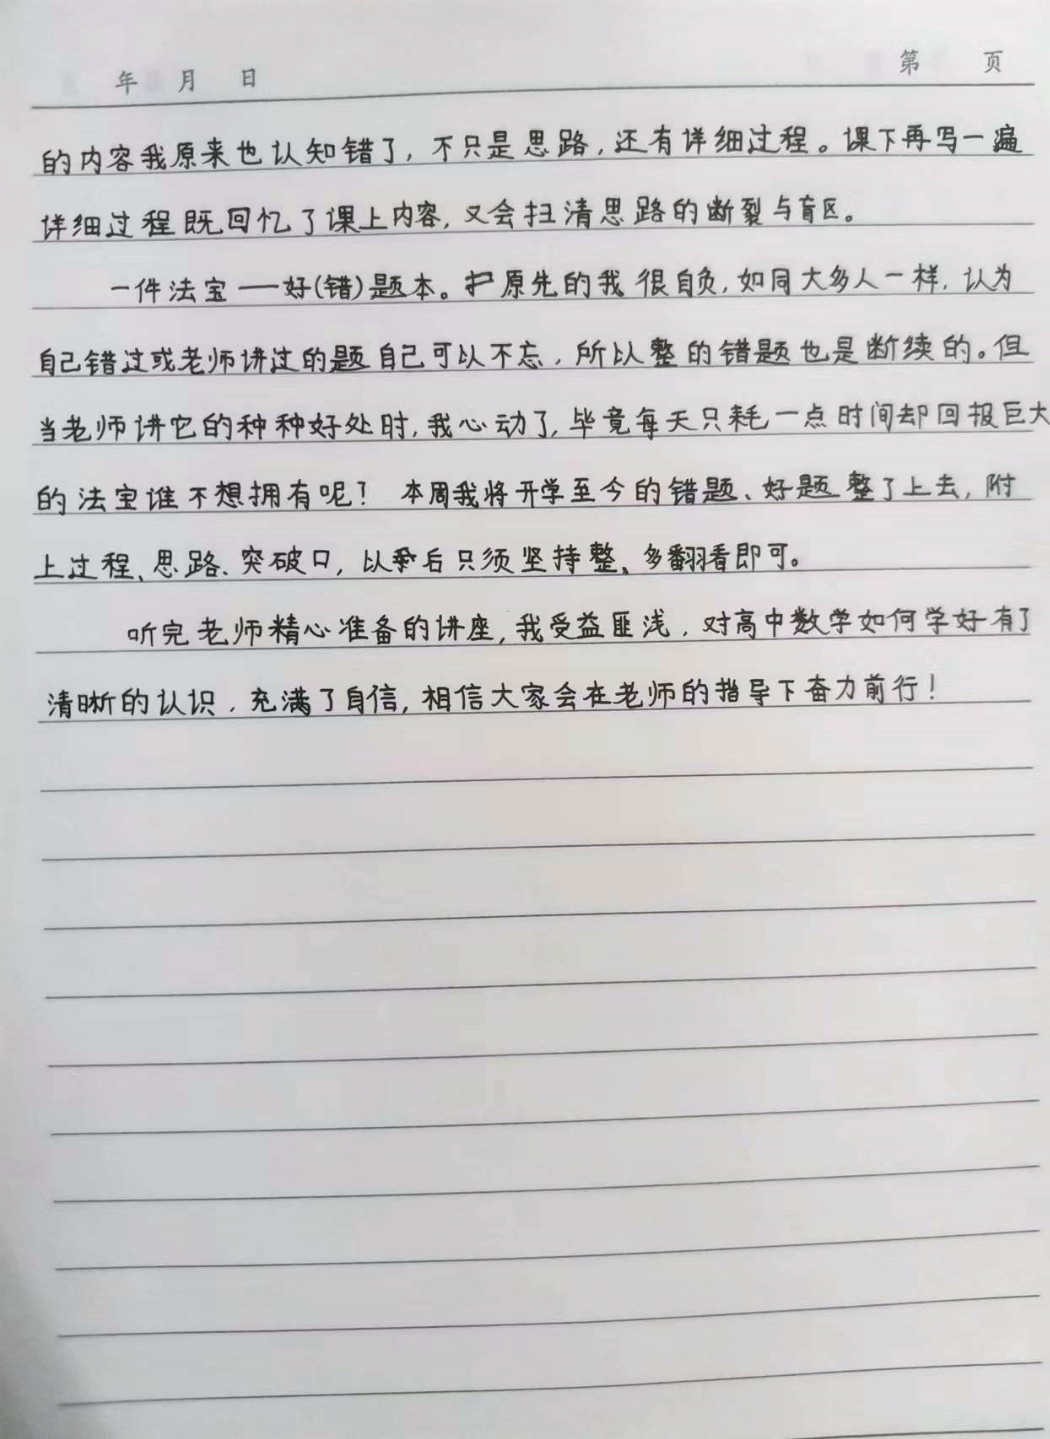 年 月 日 第 页
的内容我原来也认知错了，不只是思路，还有详细过程。课下再写一遍
详细过程既回忆了课上内容，又会扫清思路的断裂与盲区。
一件法宝——好(错)题本。原先的我很自负，如同大多人一样，认为
自己错过或老师讲过的题自己可以不忘，所以整的错题也是断续的。但
当老师讲它的种种好处时，我心动了，毕竟每天只耗一点时间却回报巨大
的法宝谁不想拥有呢？本周我将开学至今的错题、好题整了上去，附
上过程、思路、突破口，以后只须坚持整、多翻看即可。
听完老师精心准备的讲座，我受益匪浅，对高中数学如何学好有了
清晰的认识，充满了自信，相信大家会在老师的指导下奋力前行！